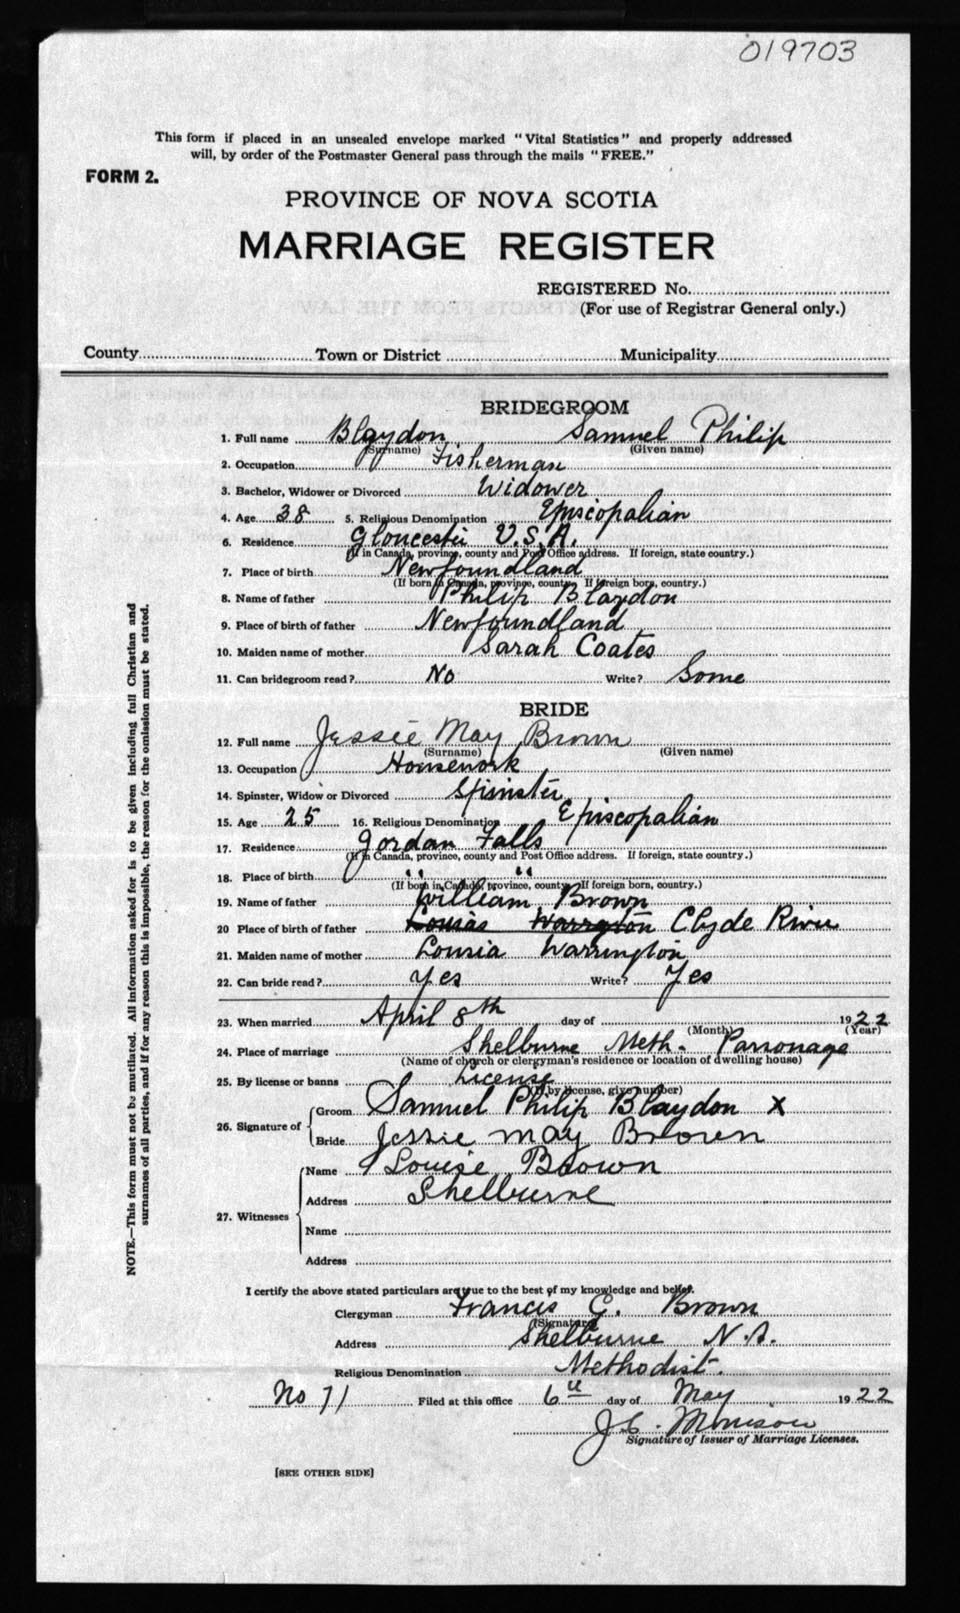 019703
This form if placed in an unsealed envelope marked "Vital Statistics" and properly addressed
will, by order of the Postmaster General pass through the mails "FREE."
FORM 2.
PROVINCE OF NOVA SCOTIA
MARRIAGE REGISTER
REGISTERED No.
(For use of Registrar General only.)
County Town or District Municipality
BRIDEGROOM
1. Full name Blaydon Samuel Philip
(Surname) (Given name)
2. Occupation Fisherman
3. Bachelor, Widower or Divorced Widower
4. Age 38 5. Religious Denomination Episcopalian
6. Residence Gloucester U.S.A.
(If in Canada, province, county and Post Office address. If foreign, state country.)
7. Place of birth Newfoundland
(If born in Canada, province, county. If foreign born, country.)
8. Name of father Philip Blaydon
9. Place of birth of father Newfoundland
10. Maiden name of mother Sarah Coates
11. Can bridegroom read? No Write? Some
BRIDE
12. Full name Jessie May Brown
(Surname) (Given name)
13. Occupation Housework
14. Spinster, Widow or Divorced Spinster
15. Age 25 16. Religious Denomination Episcopalian
17. Residence Jordan Falls
(If in Canada, province, county and Post Office address. If foreign, state country.)
18. Place of birth " "
(If born in Canada, province, county. If foreign born, country.)
19. Name of father William Brown
20 Place of birth of father Louias Warrgton Clyde River
21. Maiden name of mother Lousia Warrington
22. Can bride read? Yes Write? Yes
23. When married April 8th day of 1922
(Month) (Year)
24. Place of marriage Shelburne Meth. Parsonage
(Name of church or clergyman's residence or location of dwelling house)
25. By license or banns License
(If by license, give number)
26. Signature of Groom Samuel Philip Blaydon X
Bride Jessie May Brown
27. Witnesses Name Louise Brown
Address Shelburne
Name
Address
I certify the above stated particulars are true to the best of my knowledge and belief.
Clergyman Francis E. Brown
(Signature)
Address Shelburne N.S.
Religious Denomination Methodist.
No 71 Filed at this office 6th day of May 1922
J.C. Morrison
Signature of Issuer of Marriage Licenses.
[SEE OTHER SIDE]
NOTE.—This form must not be mutilated. All information asked for is to be given including full Christian and
surnames of all parties, and if for any reason this is impossible, the reason for the omission must be stated.